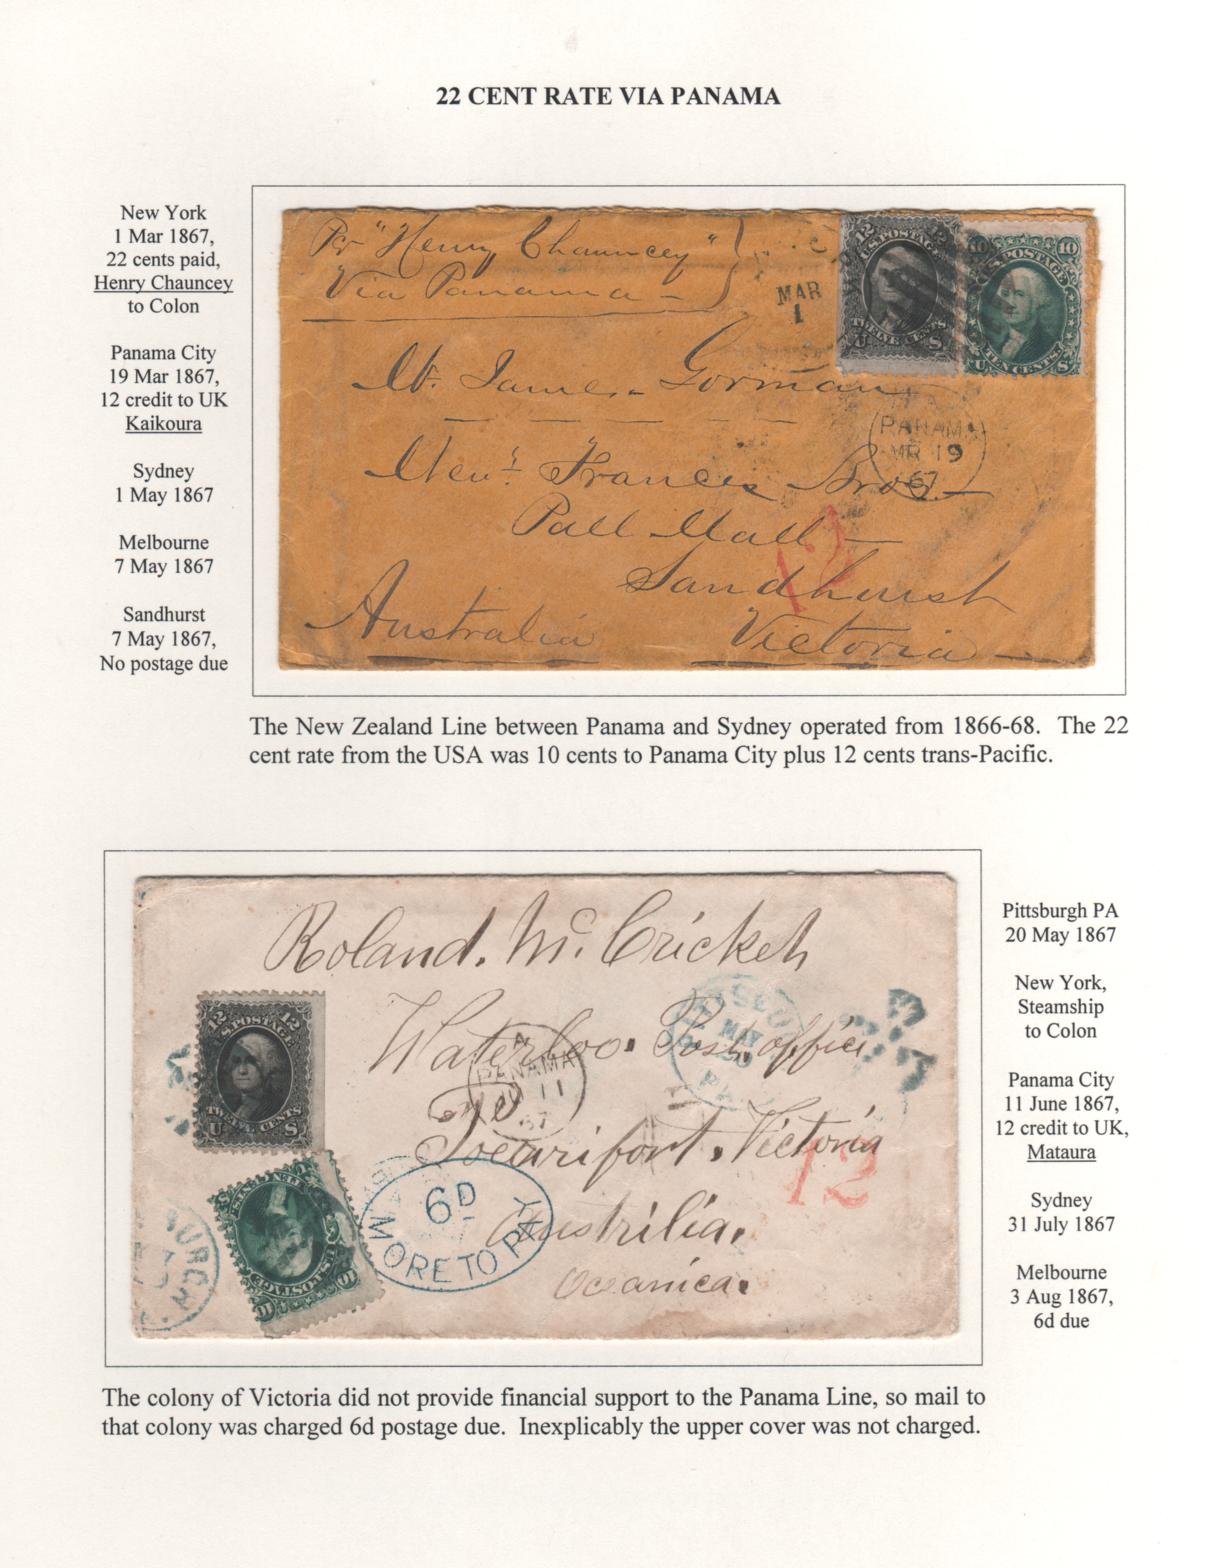 22 CENT RATE VIA PANAMA
New York
1 Mar 1867,
22 cents paid,
Henry Chauncey
to Colon
Panama City
19 Mar 1867,
12 credit to UK
Kaikoura
Sydney
1 May 1867
Melbourne
7 May 1867
Sandhurst
7 May 1867,
No postage due
Pr "Henry Chauncey"
Via Panama
MAR
1
12 12
U.S. POSTAGE
TWELVE CENTS
U S
10 10
U.S. POSTAGE
TEN CENTS
U S
Mr. James Gorman
PANAMA
MR 19
67
Messrs Francis Bros.
Pall Mall
12
Sandhurst
Australia Victoria
The New Zealand Line between Panama and Sydney operated from 1866-68. The 22
cent rate from the USA was 10 cents to Panama City plus 12 cents trans-Pacific.
Roland. Mc. Cricket
Waterloo. Post. office
PITTSBURGH
MAY
20
PA
12 12
U.S. POSTAGE
TWELVE CENTS
U S
A
PANAMA
JU 11
67
Victoria
12
6D
MORE TO PAY
Austrilia.
Oceanica.
10
Pittsburgh PA
20 May 1867
New York,
Steamship
to Colon
Panama City
11 June 1867,
12 credit to UK,
Mataura
Sydney
31 July 1867
Melbourne
3 Aug 1867,
6d due
The colony of Victoria did not provide financial support to the Panama Line, so mail to
that colony was charged 6d postage due. Inexplicably the upper cover was not charged.